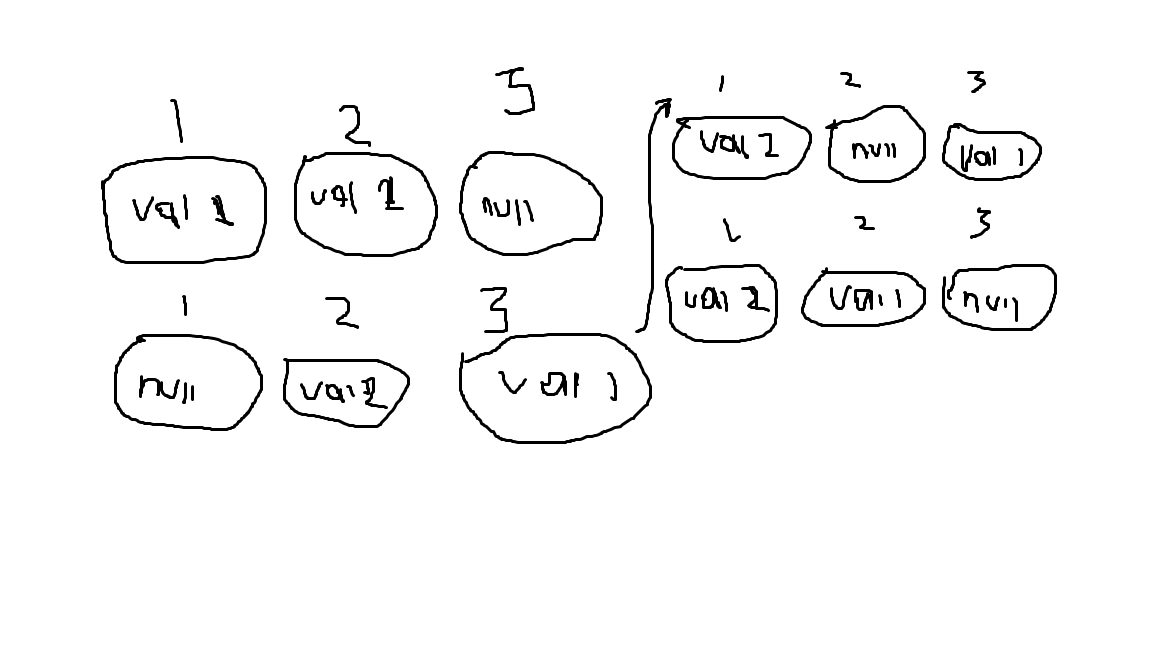 1 2 3
val 1 val 2 null
1 2 3
null val 2 val 1
1 2 3
val 2 null val 1
1 2 3
val 2 val 1 null